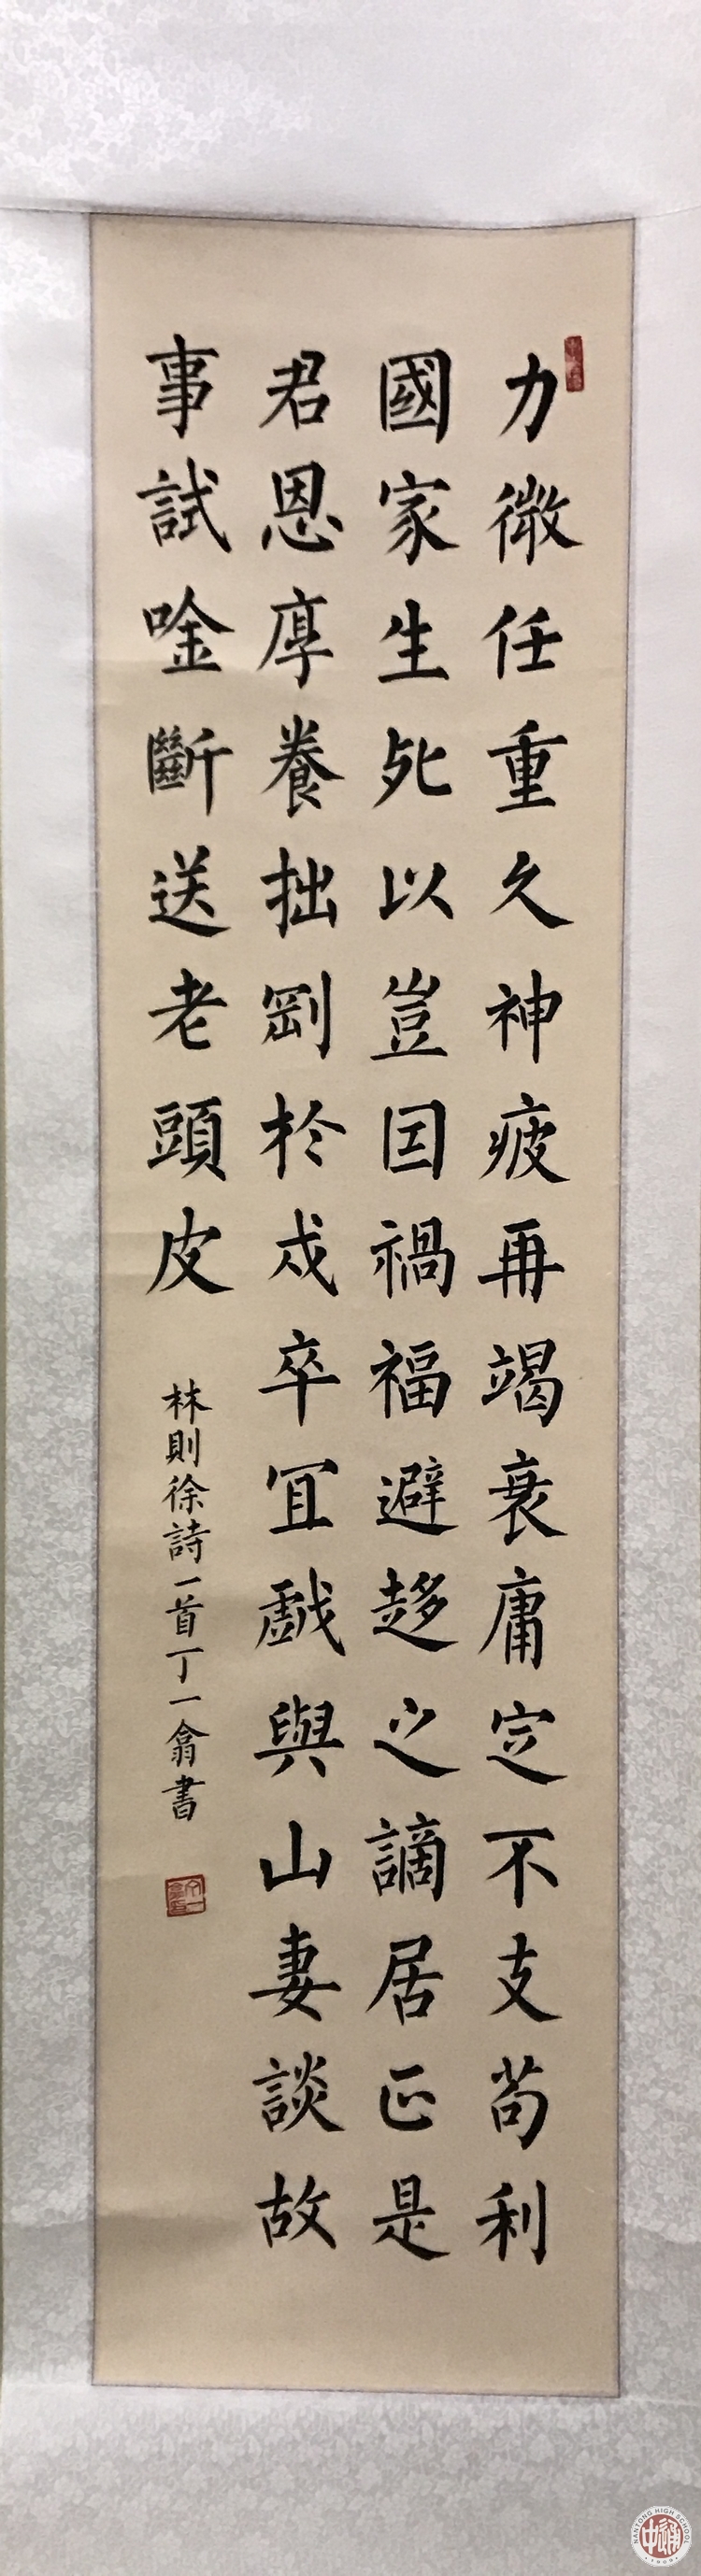 力微任重久神疲再竭衰庸定不支苟利
國家生死以豈因禍福避趍之謫居正是
君恩厚養拙剛於戍卒宜戲與山妻談故
事試唫斷送老頭皮
林則徐詩一首丁一翕書
NANTONG HIGH SCHOOL
1909